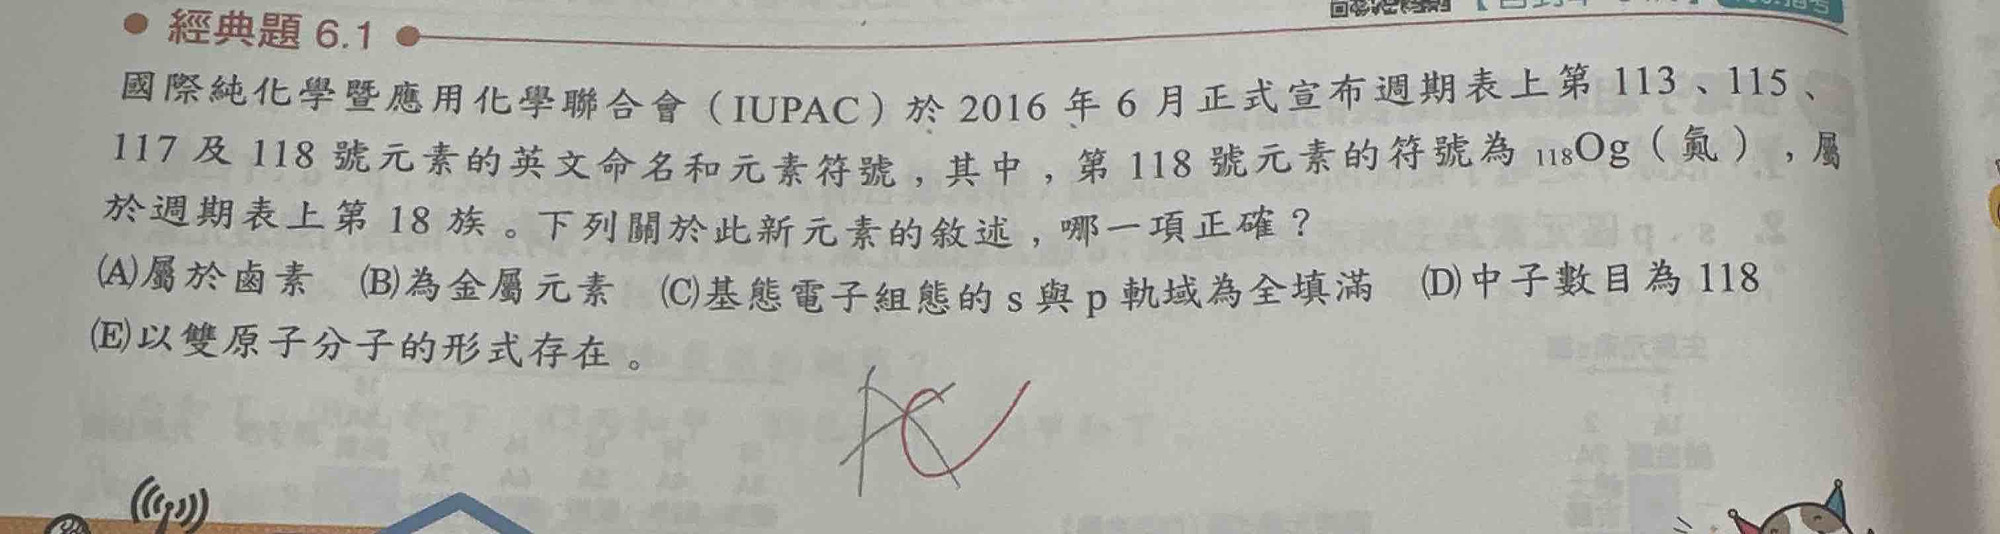 經典題 6.1
國際純化學暨應用化學聯合會（IUPAC）於 2016 年 6 月正式宣布週期表上第 113、115、
117 及 118 號元素的英文命名和元素符號，其中，第 118 號元素的符號為 ₁₁₈Og（鿫），屬
於週期表上第 18 族。下列關於此新元素的敘述，哪一項正確？
(A)屬於鹵素 (B)為金屬元素 (C)基態電子組態的 s 與 p 軌域為全填滿 (D)中子數目為 118
(E)以雙原子分子的形式存在。